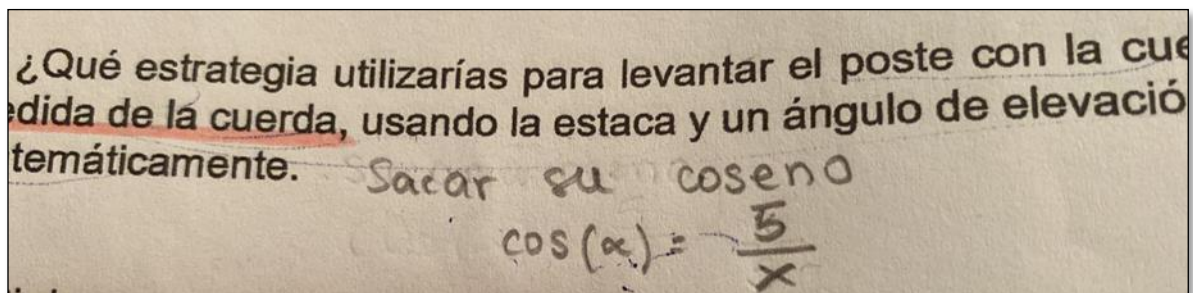 ¿Qué estrategia utilizarías para levantar el poste con la cue
edida de la cuerda, usando la estaca y un ángulo de elevació
temáticamente. Sacar su coseno
cos(α) = 5/x